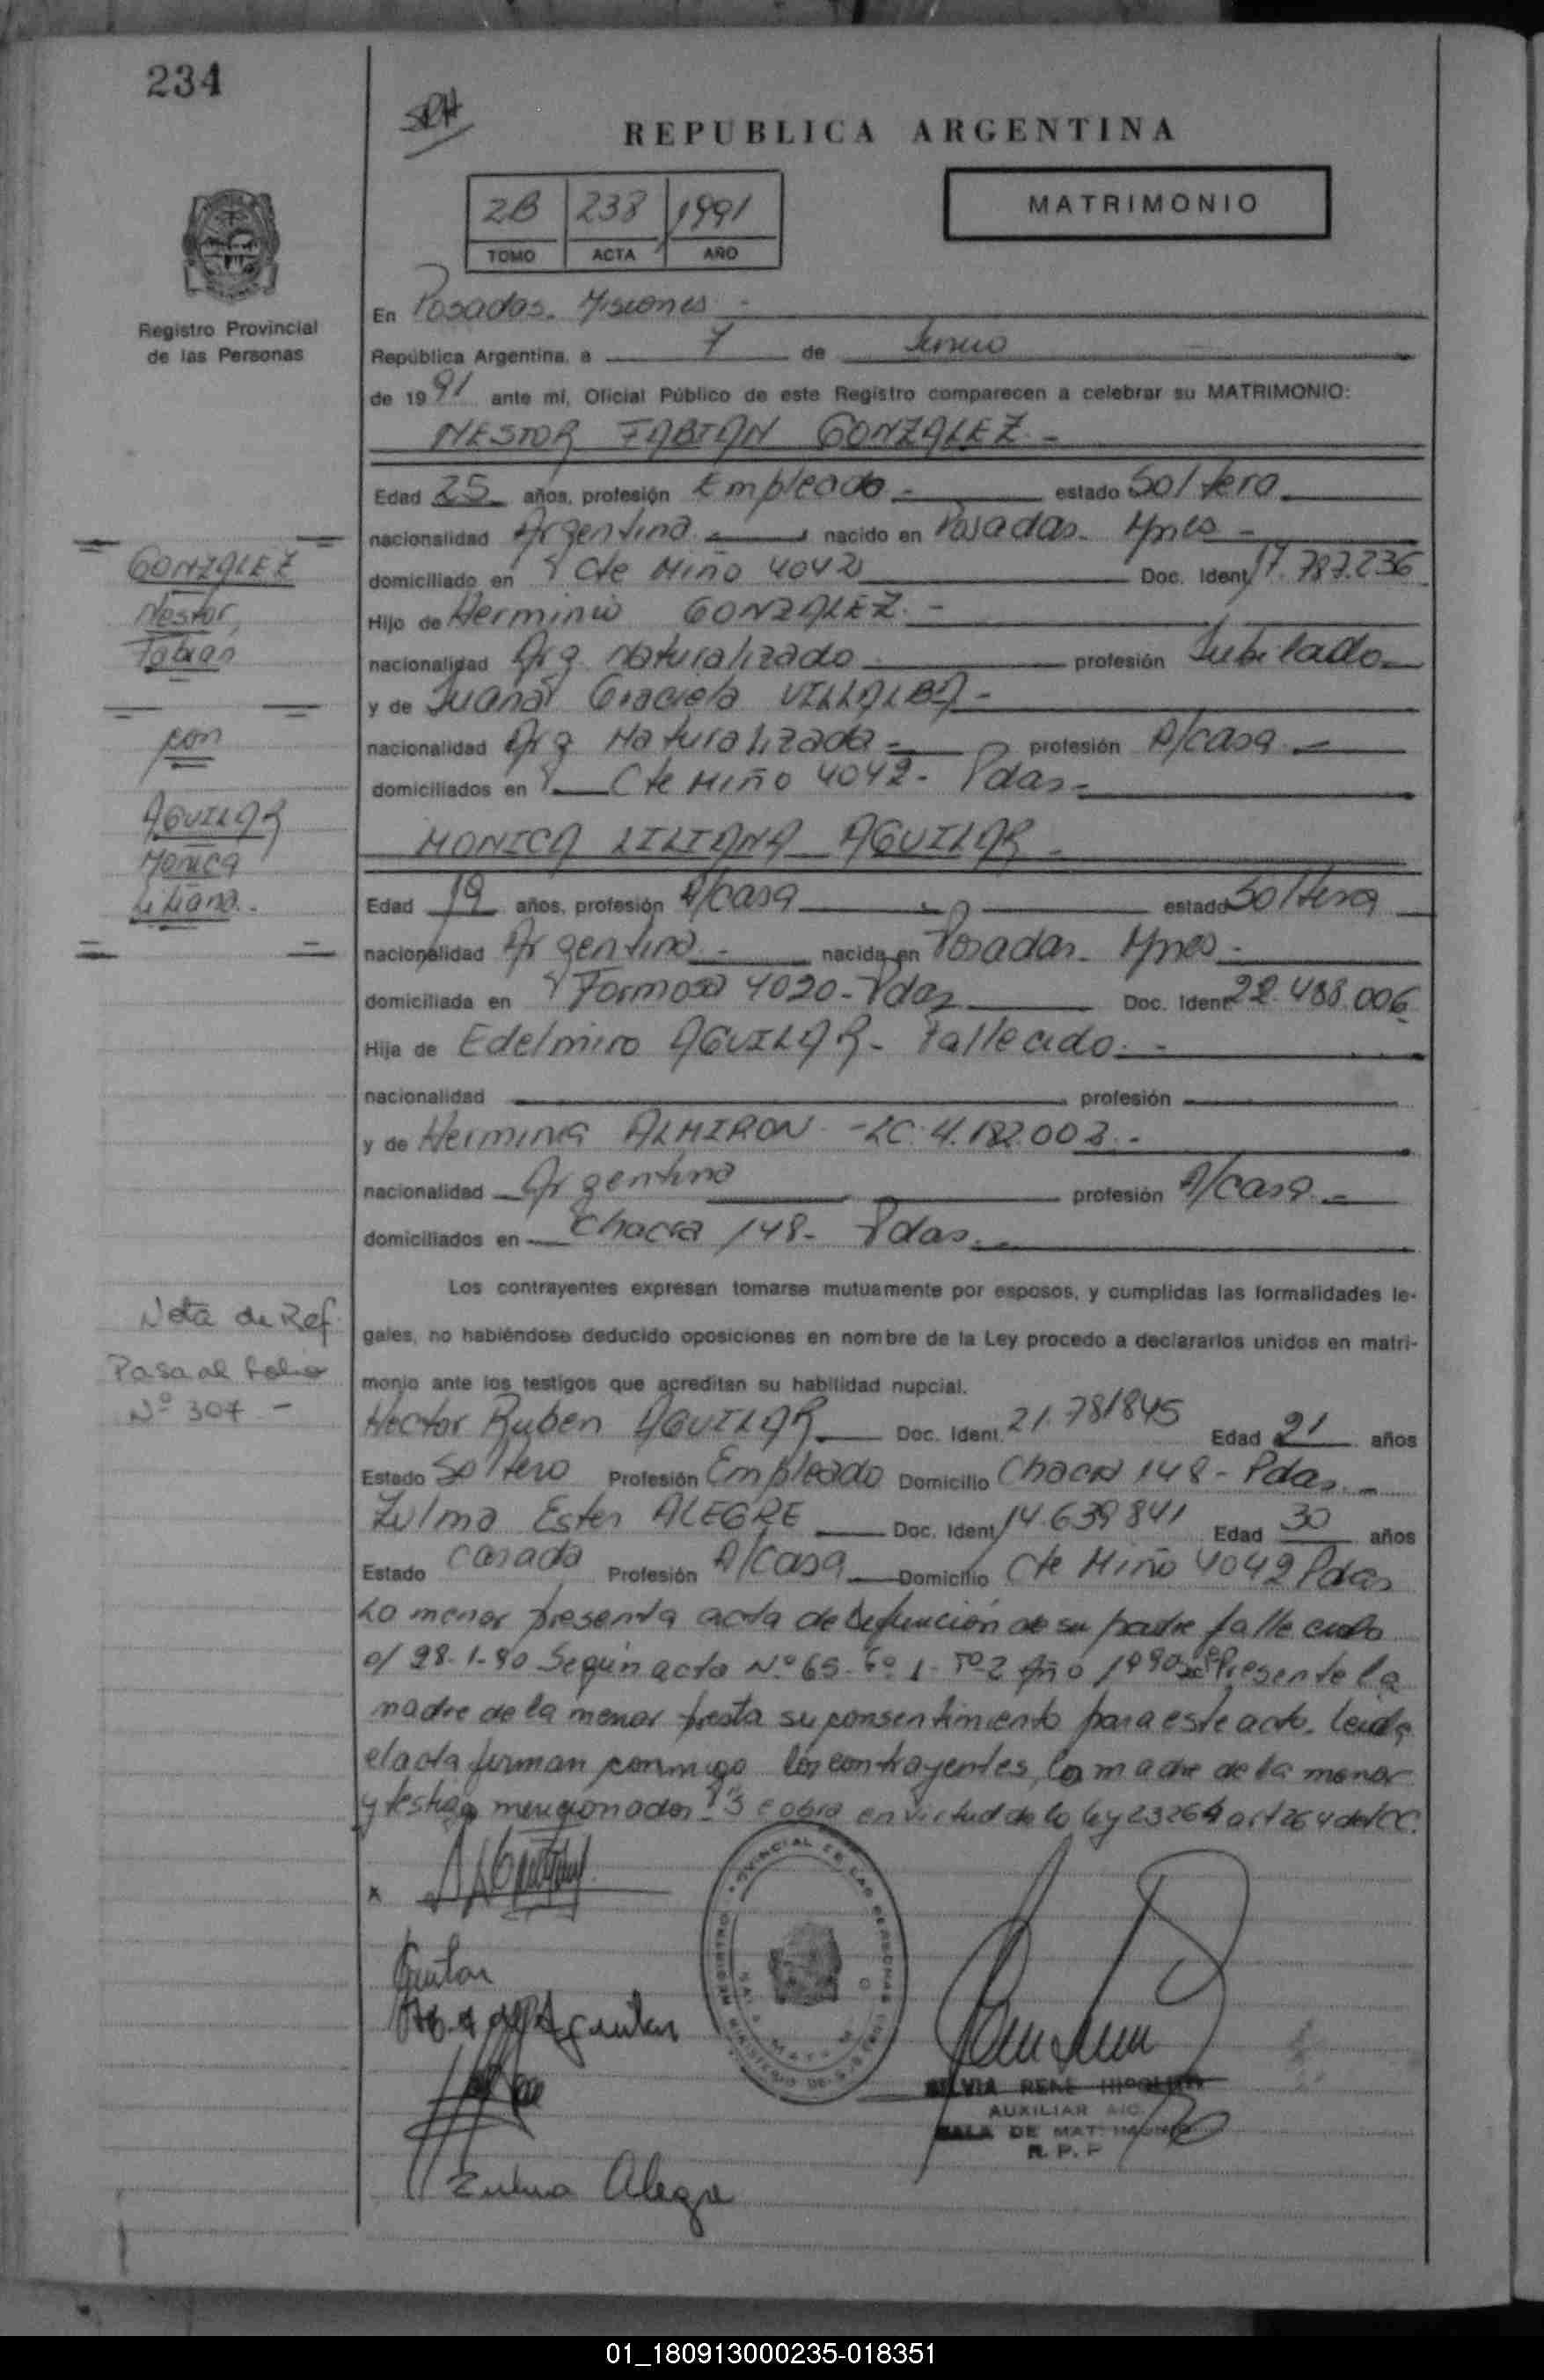 234
SRH
REPUBLICA ARGENTINA
2B 238 1991
TOMO ACTA AÑO
MATRIMONIO
Registro Provincial
de las Personas
En Posadas. Misiones -
República Argentina, a 7 de Junio
de 1991 ante mí, Oficial Público de este Registro comparecen a celebrar su MATRIMONIO:
NESTOR FABIAN GONZALEZ -
Edad 25 años, profesión Empleado - estado Soltero
nacionalidad Argentina nacido en Posadas. Mnes -
domiciliado en Cte Miño 4042 Doc. Ident 17.787.236
Hijo de Herminio GONZALEZ. -
nacionalidad Arg. Naturalizado profesión Jubilado
y de Juana Graciela VILLALBA -
nacionalidad Arg Naturalizada - profesión A/casa -
domiciliados en Cte Miño 4042 - Pdas -
MONICA LILIANA AGUILAR -
Edad 19 años, profesión A/casa estado Soltera
nacionalidad Argentina - nacida en Posadas. Mnes -
domiciliada en Formosa 4020 - Pdas Doc. Ident 22.488.006
Hija de Edelmiro AGUILAR - Fallecido. -
nacionalidad profesión
y de Herminia ALMIRON - LC. 4.182.003. -
nacionalidad Argentina profesión A/casa -
domiciliados en Chacra 148 - Pdas.
Los contrayentes expresan tomarse mutuamente por esposos, y cumplidas las formalidades le-
gales, no habiéndose deducido oposiciones en nombre de la Ley procedo a declararlos unidos en matri-
monio ante los testigos que acreditan su habilidad nupcial.
Hector Ruben AGUILAR Doc. Ident. 21.781845 Edad 21 años
Estado Soltero Profesión Empleado Domicilio Chacra 148 - Pdas. -
Zulma Ester ALEGRE Doc. Ident 14.639841 Edad 30 años
Estado casada Profesión A/casa Domicilio Cte Miño 4042 Pdas
La menor presenta acta de defunción de su padre fallecido
el 28-1-90 Según acta Nº 65 - Fº 1 - Tº 2 Año 1990 Presente la
madre de la menor presta su consentimiento para este acto. Leida
el acta firman conmigo los contrayentes, la madre de la menor
y testigos mencionados en virtud de la ley 23264 art 264 del CC.
GONZALEZ
Nestor,
Fabian
con
AGUILAR
Monica
Liliana. -
Nota de Ref.
Pasa al folio
Nº 307 -
x
REGISTRO PROVINCIAL DE LAS PERSONAS
Zulma Alegre
SILVIA RENE HIPOLITO
AUXILIAR
SALA DE MATRIMONIO
R. P. P
01_180913000235-018351